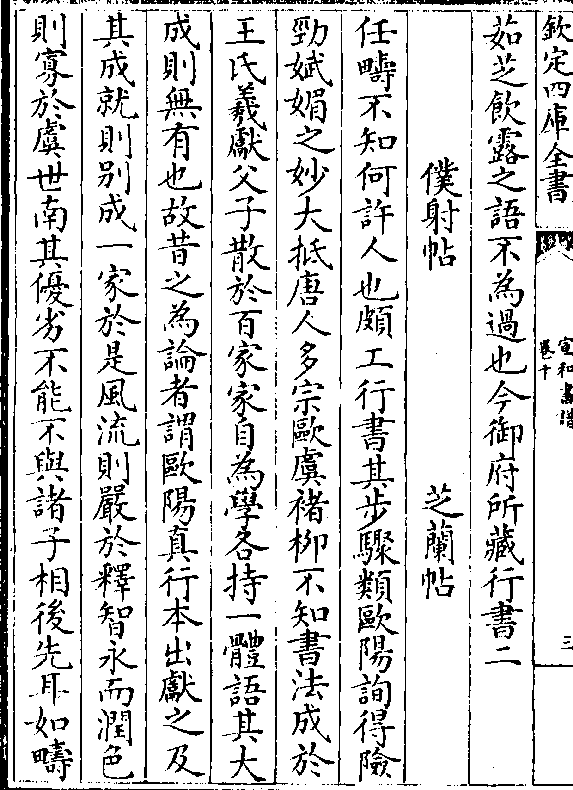 欽定四庫全書
宣和書譜
卷十
三
茹芝飲露之語不為過也今御府所藏行書二
僕射帖
芝蘭帖
任疇不知何許人也頗工行書其步驟類歐陽詢得險
勁娬媚之妙大抵唐人多宗歐虞褚柳不知書法成於
王氏羲獻父子散於百家家自為學各持一體語其大
成則無有也故昔之為論者謂歐陽真行本出獻之及
其成就則別成一家於是風流則嚴於釋智永而潤色
則寡於虞世南其優劣不能不與諸子相後先耳如疇